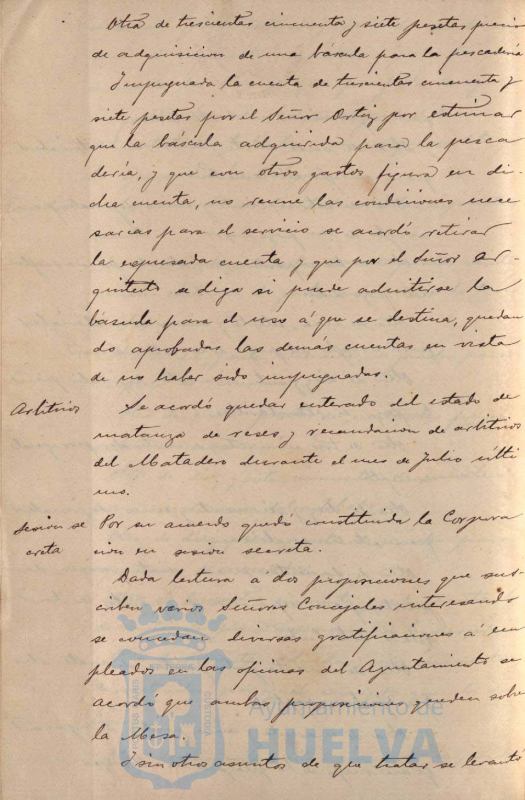 Otra de trescientas cincuenta y siete pesetas precio
de adquisicion de una báscula para la pescadería
Impugnada la cuenta de trescientas cincuenta y
siete pesetas por el Señor Ortiz por estimar
que la báscula adquirida para la pesca
dería, y que con otros gastos figura en di
cha cuenta, no reune las condiciones nece
sarias para el servicio se acordó retirar
la espresada cuenta y que por el Señor Ar-
quitecto se diga si puede admitirse la
báscula para el uso á que se destina, quedan
do aprobadas las demás cuentas en vista
de no haber sido impugnadas.
Arbitrios
Se acordó quedar enterado del estado de
matanza de reses y recaudacion de arbitrios
del Matadero durante el mes de Julio últi
mo.
Sesion se
creta
Por su acuerdo quedó constituida la Corpora
cion en sesion secreta.
Dada lectura a dos proposiciones que sus-
criben varios Señores Concejales interesando
se concedan diversas gratificaciones á em
pleados en las oficinas del Ayuntamiento se
acordó que ambas proposiciones queden sobre
la Mesa.
Y sin otros asuntos de que tratar se levantó
Ayuntamiento de
HUELVA